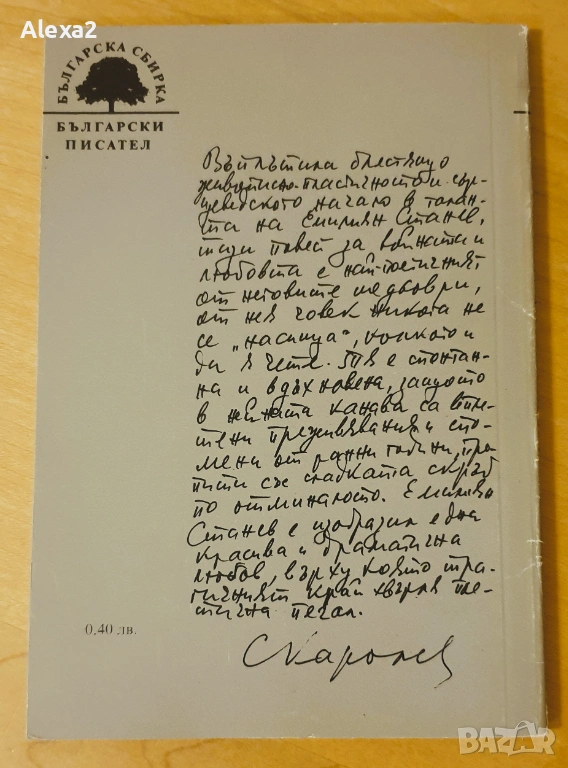 Alexa2
БЪЛГАРСКА СБИРКА
БЪЛГАРСКИ
ПИСАТЕЛ
Въплътила блестящо
живописно-пластичността и сър-
цеведското начало в талан-
та на Емилиян Станев,
тази повест за войната и
любовта е най-поетичният
от неговите шедьоври,
от нея човек никога не
се „насища“, колкото и
да я чете. Тя е спонтан-
на и вдъхновена, защото
в нейната канава са впле-
тени преживявания и спо-
мени от ранни години, про-
пити със сладката скръб
по отминалото. Емилиян
Станев е изобразил една
красива и драматична
любов, върху която тра-
гичният край хвърля пое-
тична печал.
0,40 лв.
СКаролев
BAZAR